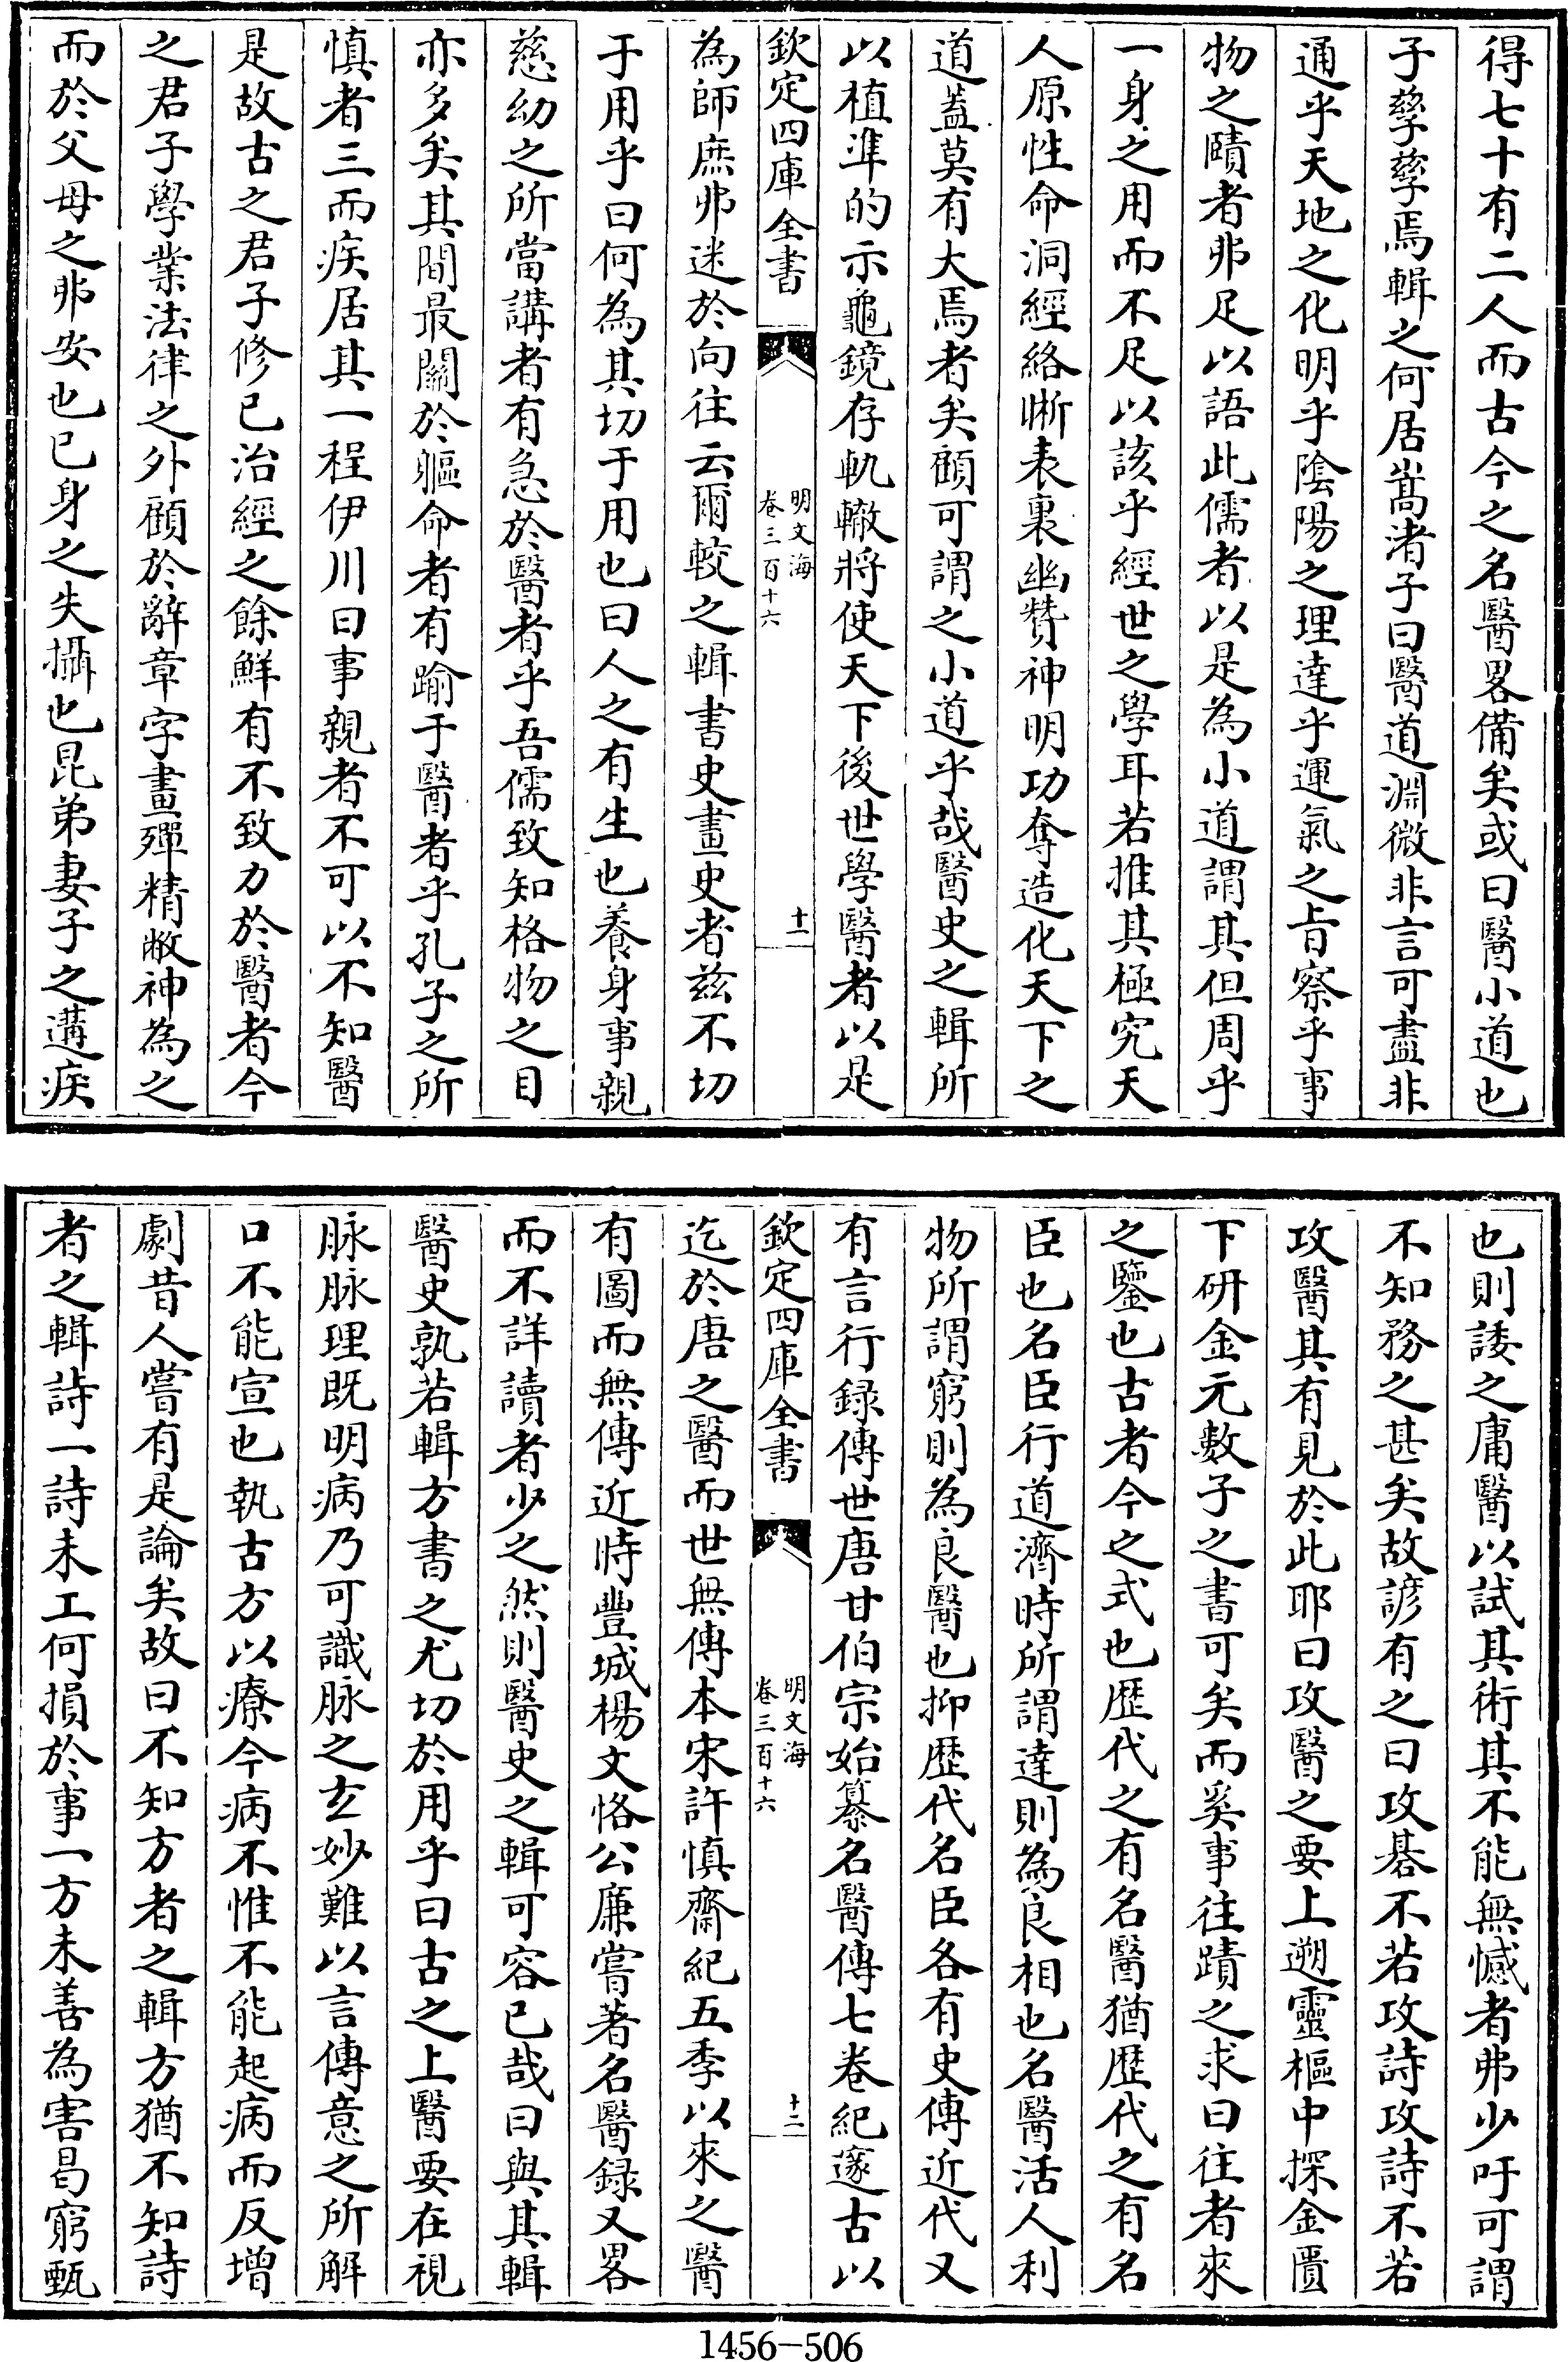 得七十有二人而古今之名醫畧備矣或曰醫小道也
子孳孳焉輯之何居嵩渚子曰醫道淵微非言可盡非
通乎天地之化明乎陰陽之理達乎運氣之㫖察乎事
物之賾者弗足以語此儒者以是為小道謂其但周乎
一身之用而不足以該乎經世之學耳若推其極究天
人原性命洞經絡晣表裏幽贊神明功奪造化天下之
道蓋莫有大焉者矣顧可謂之小道乎哉醫史之輯所
以植準的示龜鏡存軌轍將使天下後世學醫者以是
欽定四庫全書
明文海
卷三百十六
十一
為師庶弗迷於向往云爾較之輯書史畫史者兹不切
于用乎曰何為其切于用也曰人之有生也養身事親
慈幼之所當講者有急於醫者乎吾儒致知格物之目
亦多矣其間最關於軀命者有踰于醫者乎孔子之所
慎者三而疾居其一程伊川曰事親者不可以不知醫
是故古之君子修已治經之餘鮮有不致力於醫者今
之君子學業法律之外顧於辭章字畫殫精敝神為之
而於父母之弗安也已身之失攝也昆弟妻子之遘疾
也則諉之庸醫以試其術其不能無憾者弗少吁可謂
不知務之甚矣故諺有之曰攻碁不若攻詩攻詩不若
攻醫其有見於此耶曰攻醫之要上遡靈樞中探金匱
下研金元數子之書可矣而奚事往蹟之求曰往者來
之鑒也古者今之式也歷代之有名醫猶歷代之有名
臣也名臣行道濟時所謂達則為良相也名醫活人利
物所謂窮則為良醫也抑歷代名臣各有史傳近代又
有言行録傳世唐甘伯宗始纂名醫傳七卷紀邃古以
欽定四庫全書
明文海
卷三百十六
十二
迄於唐之醫而世無傳本宋許慎齋紀五季以來之醫
有圖而無傳近時豐城楊文恪公廉嘗著名醫録又畧
而不詳讀者少之然則醫史之輯可容已哉曰與其輯
醫史孰若輯方書之尤切於用乎曰古之上醫要在視
脉脉理既明病乃可識脉之玄妙難以言傳意之所解
口不能宣也執古方以療今病不惟不能起病而反增
劇昔人嘗有是論矣故曰不知方者之輯方猶不知詩
者之輯詩一詩未工何損於事一方未善為害曷窮甄
1456-506